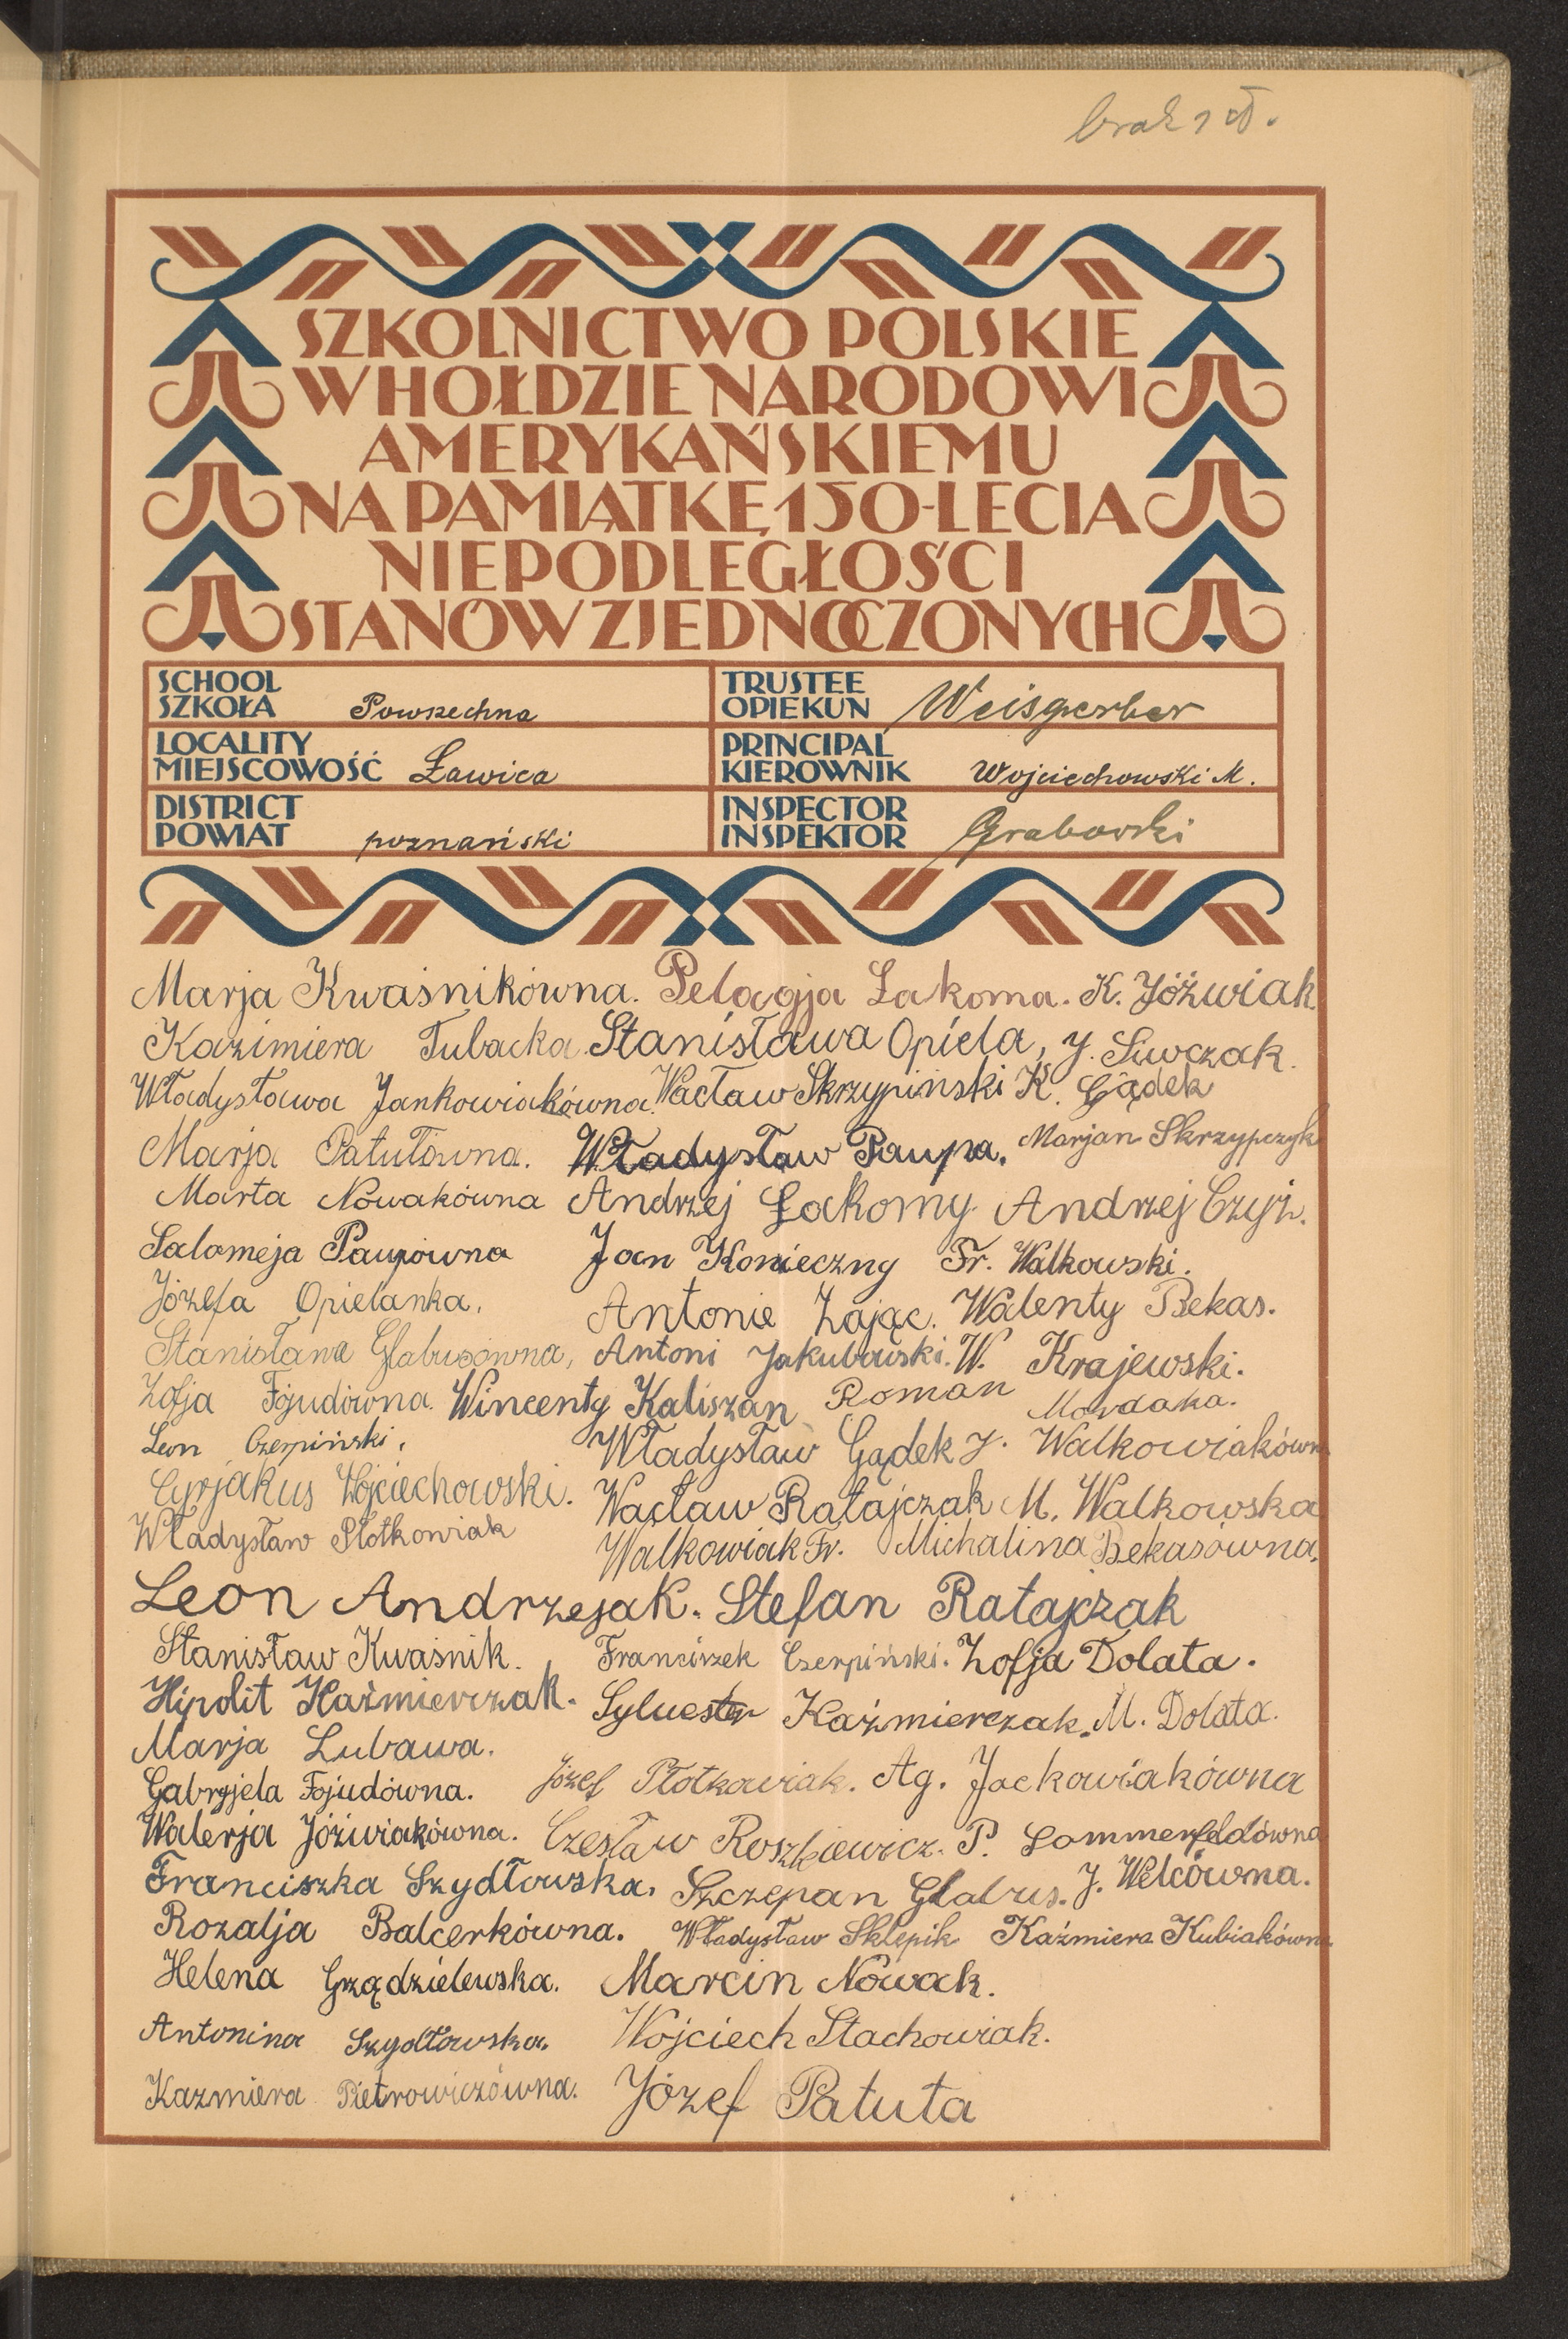 brak 1 zł.
SZKOLNICTWO POLSKIE
W HOŁDZIE NARODOWI
AMERYKAŃSKIEMU
NA PAMIĄTKĘ 150-LECIA
NIEPODLEGŁOŚCI
STANÓW ZJEDNOCZONYCH
SCHOOL
SZKOŁA Powszechna
TRUSTEE
OPIEKUN Weisgerber
LOCALITY
MIEJSCOWOŚĆ Ławica
PRINCIPAL
KIEROWNIK Wojciechowski M.
DISTRICT
POWIAT poznański
INSPECTOR
INSPEKTOR Grabowski
Marja Kwaśnikówna. Pelagja Łakoma. K. Jóźwiak.
Kazimiera Tubacka. Stanisława Opiela, J. Siwczak.
Władysława Jankowiakówna. Wacław Skrzypiński K. Gądek
Marja Patułówna. Władysław Paupa. Marjan Skrzypczyk
Marta Nowakówna Andrzej Łakomy. Andrzej Czyż.
Salomeja Paupówna Jan Konieczny Fr. Walkowski.
Józefa Opielanka. Antonie Zając. Walenty Bekas.
Stanisława Glabusówna, Antoni Jakubowski. W. Krajewski.
Zofja Fojudówna. Wincenty Kaliszan Roman Mordaka.
Leon Czerpiński. Władysław Gądek J. Walkowiakówna
Cyrjakus Wojciechowski. Wacław Ratajczak M. Walkowska
Władysław Płotkowiak Walkowiak Fr. Michalina Bekasówna.
Leon Andrzejak. Stefan Ratajczak
Stanisław Kwaśnik. Franciszek Czerpiński. Zofja Dolata.
Hipolit Kaźmierczak. Sylwester Kaźmierczak. M. Dolata.
Marja Lubawa.
Gabryjela Fojudówna. Józef Płotkowiak. Ag. Jackowiakówna
Walerja Jóźwiakówna. Czesław Roszkiewicz. P. Sommerfeldówna
Franciszka Szydłowska. Szczepan Glabus. J. Welcówna.
Rozalja Balcerkówna. Władysław Sklepik Kaźmiera Kubiakówna
Helena Grządzielewska. Marcin Nowak.
Antonina Szydłowska. Wojciech Stachowiak.
Kazmiera Pietrowiczówna. Józef Patuta